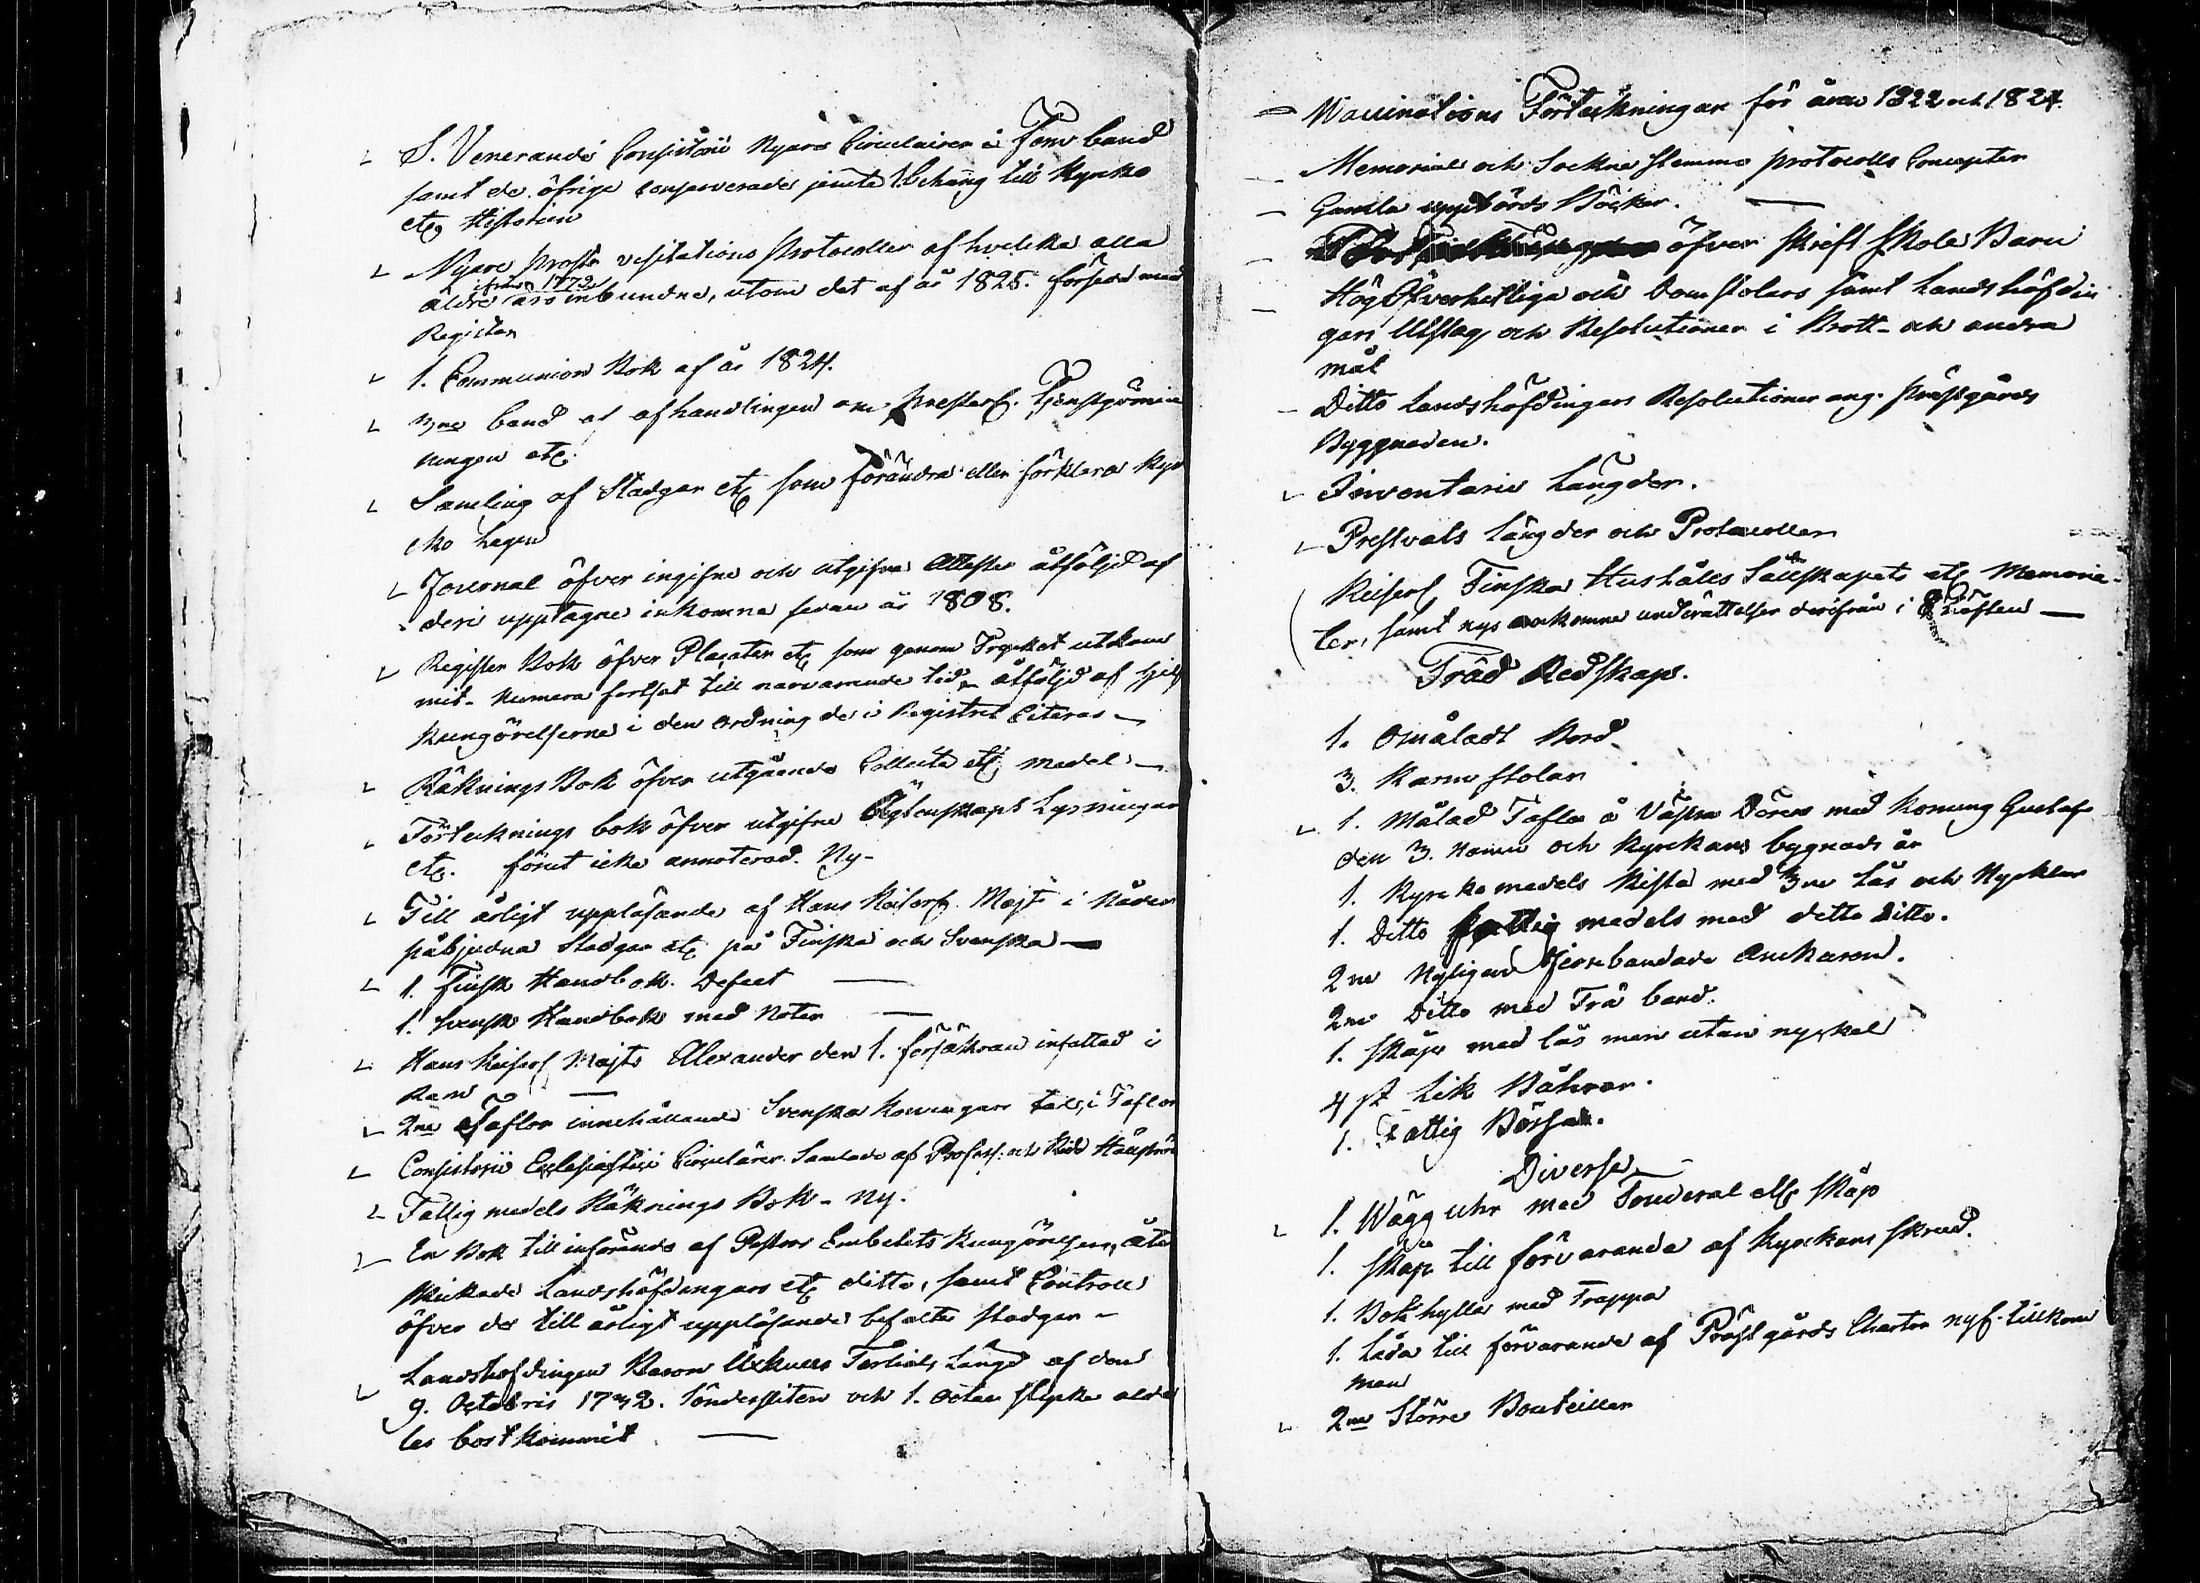 S. Venerandi Consistorii Nyare Circulairer i Fem band
samt de öfrige conserverade jemte Bihang till Kyrko
etc Historien
Nyare Prosts visitations Protocoller af hvilka alla
äldre ifrån 1773 års inbundne, utom det af år 1825. försedd med
Register
1. Communion Bok af år 1824.
3ne band af afhandlingar om Presters. Tjenstgörnin
ningen etc.
Samling af Stadgar etc som förändra eller förklara Kyr
cko Lagen
Journal öfver ingifne och utgifne Attester åtföljd af
deri upptagne inkomne sedan år 1808.
Register Bok öfver Placater etc som genom Trycket utkom
mit. Numera fortsat till närvarande tid, åtföljd af sjelf
Kungörelserne i den ordning de i Registret Citeras —
Räknings Bok öfver utgående Collecte etc medel. —
Förtecknings bok öfver utgifne Ägtenskaps Lysningar
etc. förut icke annoterad. Ny-
Till årligt uppläsande af Hans Keiserl. Majts i Nåder
påbjudna Stadgar etc på Finska och Svenska —
1. Finsk Handbok. Defect —
1. Svensk Handbok med Noter —
Hans Keiserl Majts Alexander den 1. försäkran infattad i
Ram —
2ne Taflor innehållande Svenska Konungars tal, i Taflor
Consistorii Ecclesiastici Circulärer Samlade af Profess. och Ridd
Fattig medels Räknings Bok - Ny.
En Bok till införande af Pastors Embetets Kungörelser, åter
skickade Landshöfdingars etc ditto, samt Controll
öfver de till årligt uppläsande befalte Stadgar —
Landshöfdingen Baron Uxkulls Tertials Längd af den
9. Octobris 1732. Söndersliten och 1. stycke alde
les bortkommit —
Vaccinations Förteckningar för åren 1822 och 1824.
Memorial och Sockne stämmo protocolls Concepter
Gamla uppbörds Böcker. —
öfver Skrift Skole Barn
Hög Öfverhetliga och Domstolars samt Landshöfdin
gars Utslag och Resolutioner i Brott- och andra
mål
Ditto Landshöfdingars Resolutioner ang. Prästgårds
Byggnaden.
Inventarie Längder.
Prestvals Längder och Protocoller
Keiserl Finska Hushålls Sällskapets etc Memoria-
ler, samt nys ankomne underrättelser derifrån i Häften —
Träd Redskap.
1. Omåladt Bord
3. Karm stolar
1. Målad Tafla å Västra Dören med Konung Gustaf
den 3. Namn och Kyrckans bygnads år
1. Kyrcko medels Kista med 3ne Lås och Nycklar
1. Ditto fattig medels med ditto Ditto.
2ne Nyligen Jernbandade Anckaren.
2ne Ditto med Trä band.
1. Skåp med lås men utan nyckel
4 st Lik Båhrar.
1. Fattig Bössa.
Diverse
1. Wägg uhr med Fouderal etc Skåp
1. Skåp till förvarande af Kyrckans skrud.
1. Bok hylla med Trappa
1. Låda till förvarande af Prästgårds Chartor nyl. tillkom
men
2ne Större Bouteiller